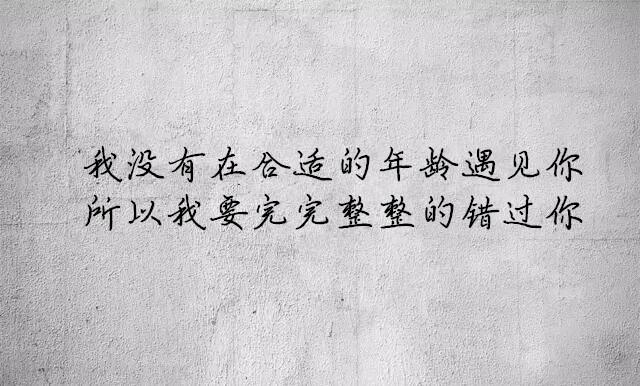 我没有在合适的年龄遇见你
所以我要完完整整的错过你